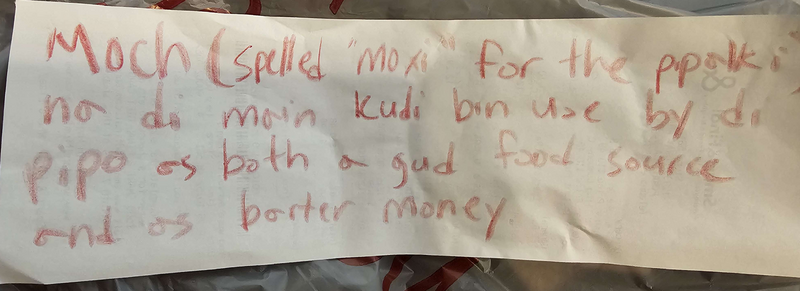 Moch (spelled "moxi" for the ppalki)
na di main kudi bin use by di
pipo as both a gud food source
and as barter money.